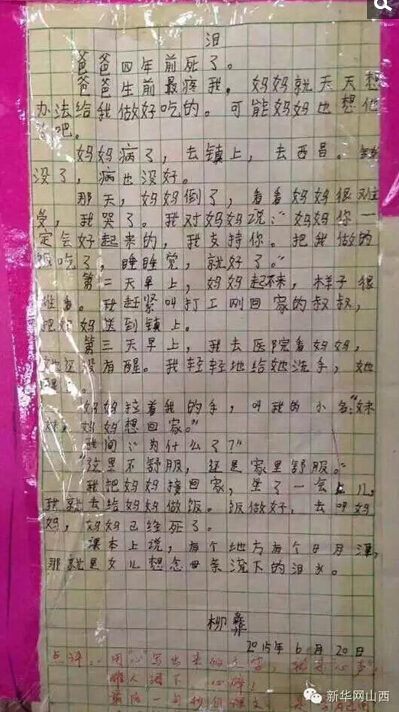 泪
爸爸四年前死了。
爸爸生前最疼我,妈妈就天天想
办法给我做好吃的。可能妈妈也想他
了吧。
妈妈病了,去镇上,去西昌。钱
没了,病也没好。
那天,妈妈倒了,看看妈妈很难
受,我哭了。我对妈妈说:“妈妈你一
定会好起来的,我支持你。把我做的
饭吃了,睡睡觉,就好了。”
第二天早上,妈妈起不来,样子很
难看。我赶紧叫打工刚回家的叔叔,
把妈妈送到镇上。
第三天早上,我去医院看妈妈,
她还没有醒。我轻轻地给她洗手,她
妈妈拉着我的手,叫我的小名:“妹
妈妈想回家。”
我问:“为什么了?”
“这里不舒服,还是家里舒服。”
我把妈妈接回家,坐了一会儿,
我就去给妈妈做饭。饭做好,去叫妈
妈,妈妈已经死了。
课本上说,有个地方有个日月潭,
那就是女儿想念母亲流下的泪水。
柳彝
2015年6月20日
点评:用心写出来的文字,
新华网山西